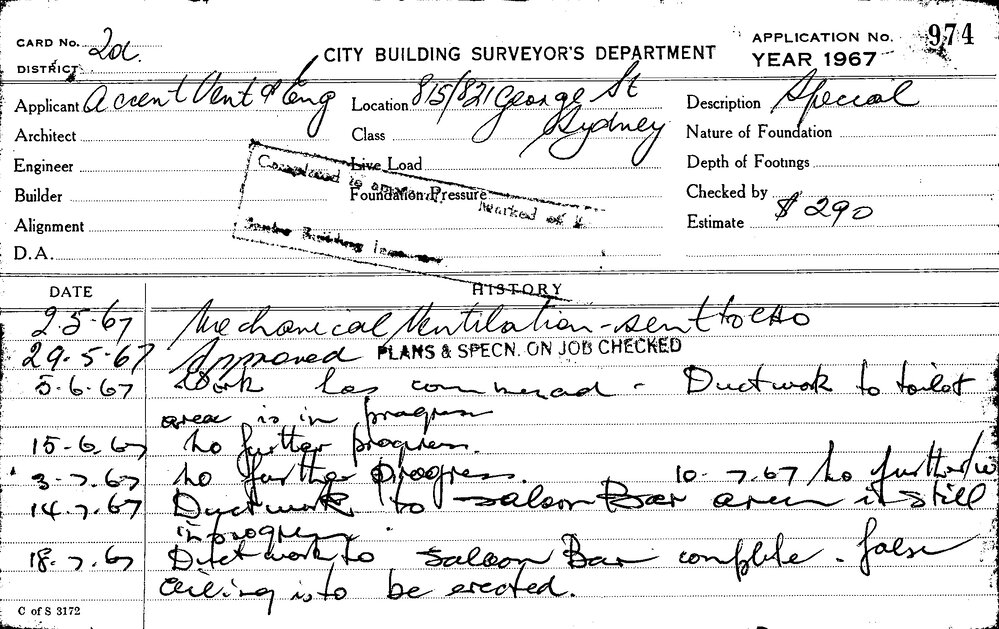 CARD No. 2a
DISTRICT
CITY BUILDING SURVEYOR'S DEPARTMENT
APPLICATION No. 974
YEAR 1967
Applicant Accent Vent & Eng
Location 815/821 George St
Sydney
Description Special
Architect
Class
Nature of Foundation
Engineer
Live Load
Depth of Footings
Builder
Foundation Pressure
Checked by
Alignment
Estimate $290
D.A.
Completed to
Marked off
Senior Building
DATE
HISTORY
2.5.67 Mechanical Ventilation - sent to CHO
29.5.67 Approved PLANS & SPECN. ON JOB CHECKED
5.6.67 Work has commenced - Ductwork to toilet
area is in progress
15.6.67 No further progress.
3.7.67 No further progress. 10.7.67 No further/w
14.7.67 Ductwork to saloon Bar area is still
in progress.
18.7.67 Ductwork to saloon Bar complete. false
ceiling is to be erected.
C of S 3172